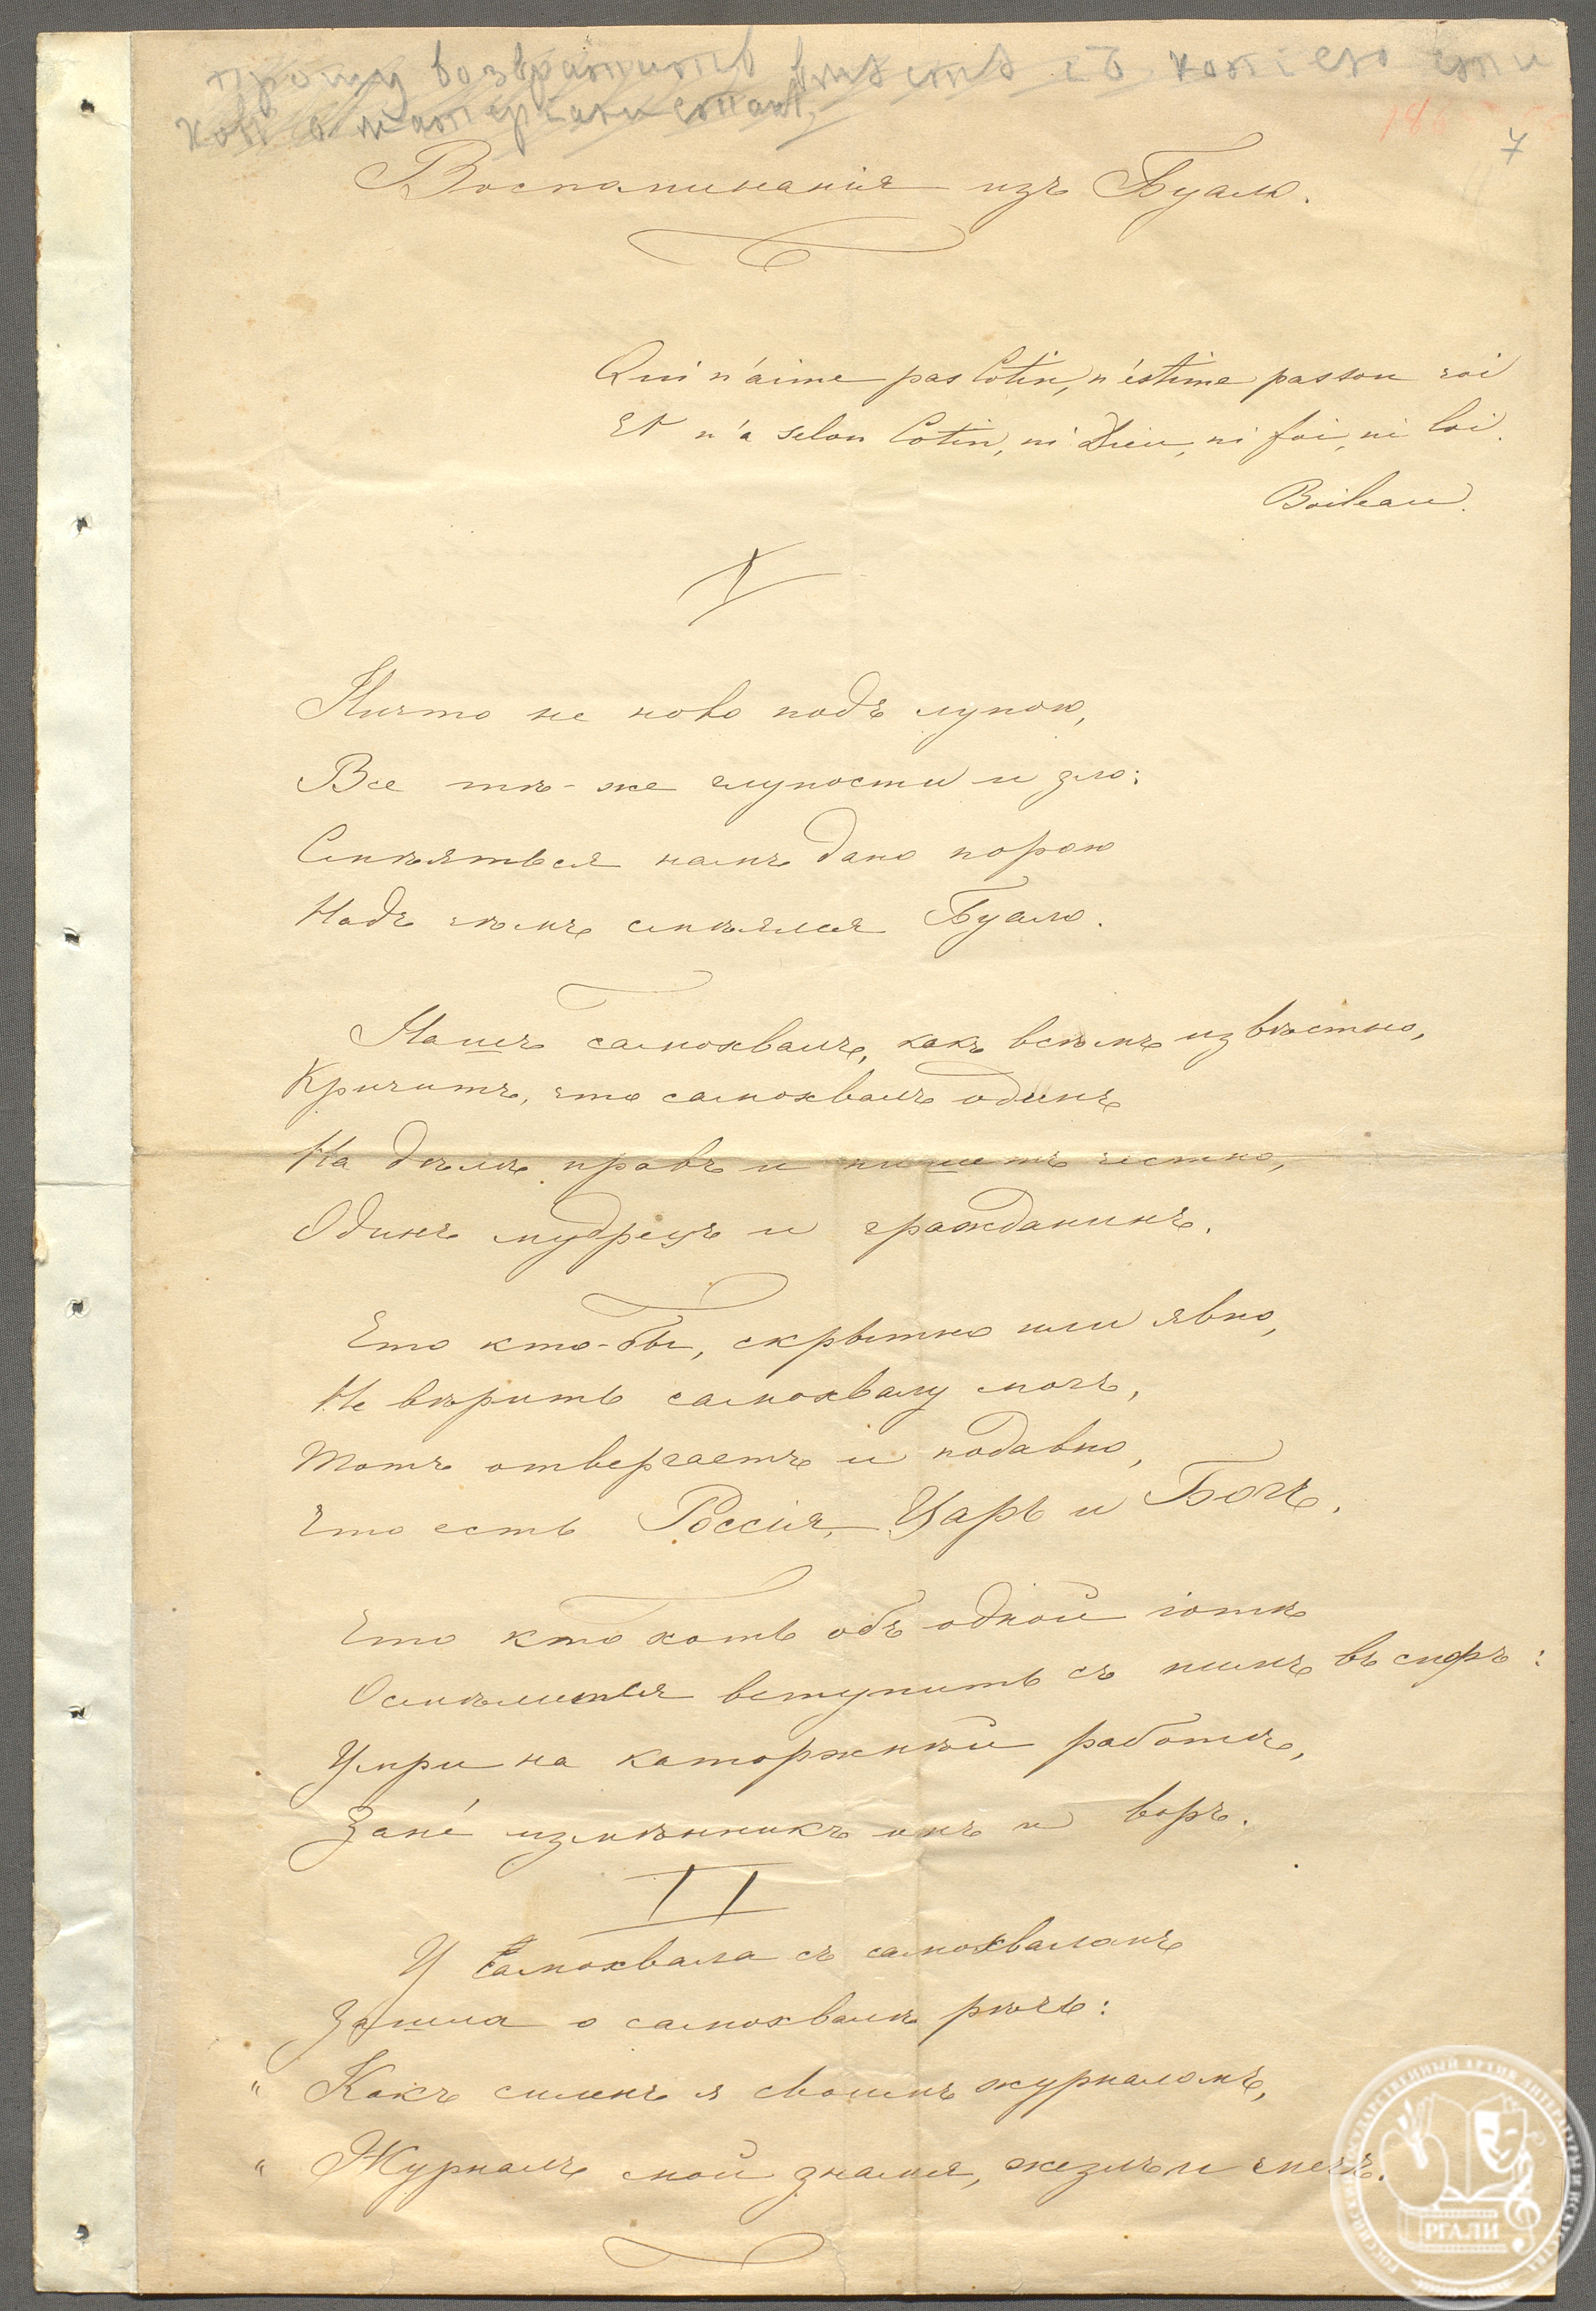 прошу возвратить вместе съ копіею
7
Воспоминанія изъ Буало.
Qui n'aime pas Cotin, n'estime pas son roi
Et n'a selon Cotin, ni Dieu, ni foi, ni loi.
Boileau.
I
Ничто не ново подъ луною,
Все тѣ-же глупости и зло:
Смѣяться намъ дано порою
Надъ чѣмъ смѣялся Буало.
Нашъ самохвалъ, какъ всѣмъ извѣстно,
Кричитъ, что самохвалъ одинъ
На дѣлѣ правъ и пишетъ честно,
Одинъ мудрецъ и гражданинъ.
Что кто-бы, скрытно или явно,
Не вѣрить самохвалу могъ,
Тотъ отвергаетъ и подавно,
Что есть Россія, Царь и Богъ.
Что кто хоть объ одной іотѣ
Осмѣлится вступить съ нимъ въ споръ:
Умри на каторжной работѣ,
Зане́ измѣнникъ онъ и воръ.
II
У самохвала съ самохваломъ
Зашла о самохвалѣ рѣчь:
„ Какъ силенъ я своимъ журналомъ,
„ Журналъ мой знамя, жезлъ и мечъ.
РГАЛИ